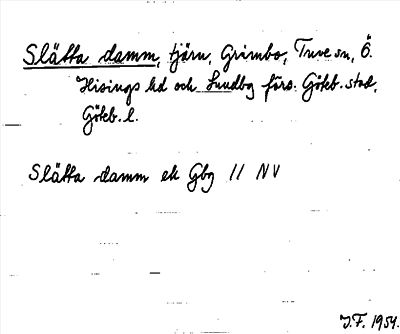 Slätta damm, tjärn, Grimbo, Tuve sn, Ö.
Hisings hd och Lundby förs. Göteb. stad,
Göteb. l.
Slätta damm ek Gbg 11 NV
J.F. 1954.